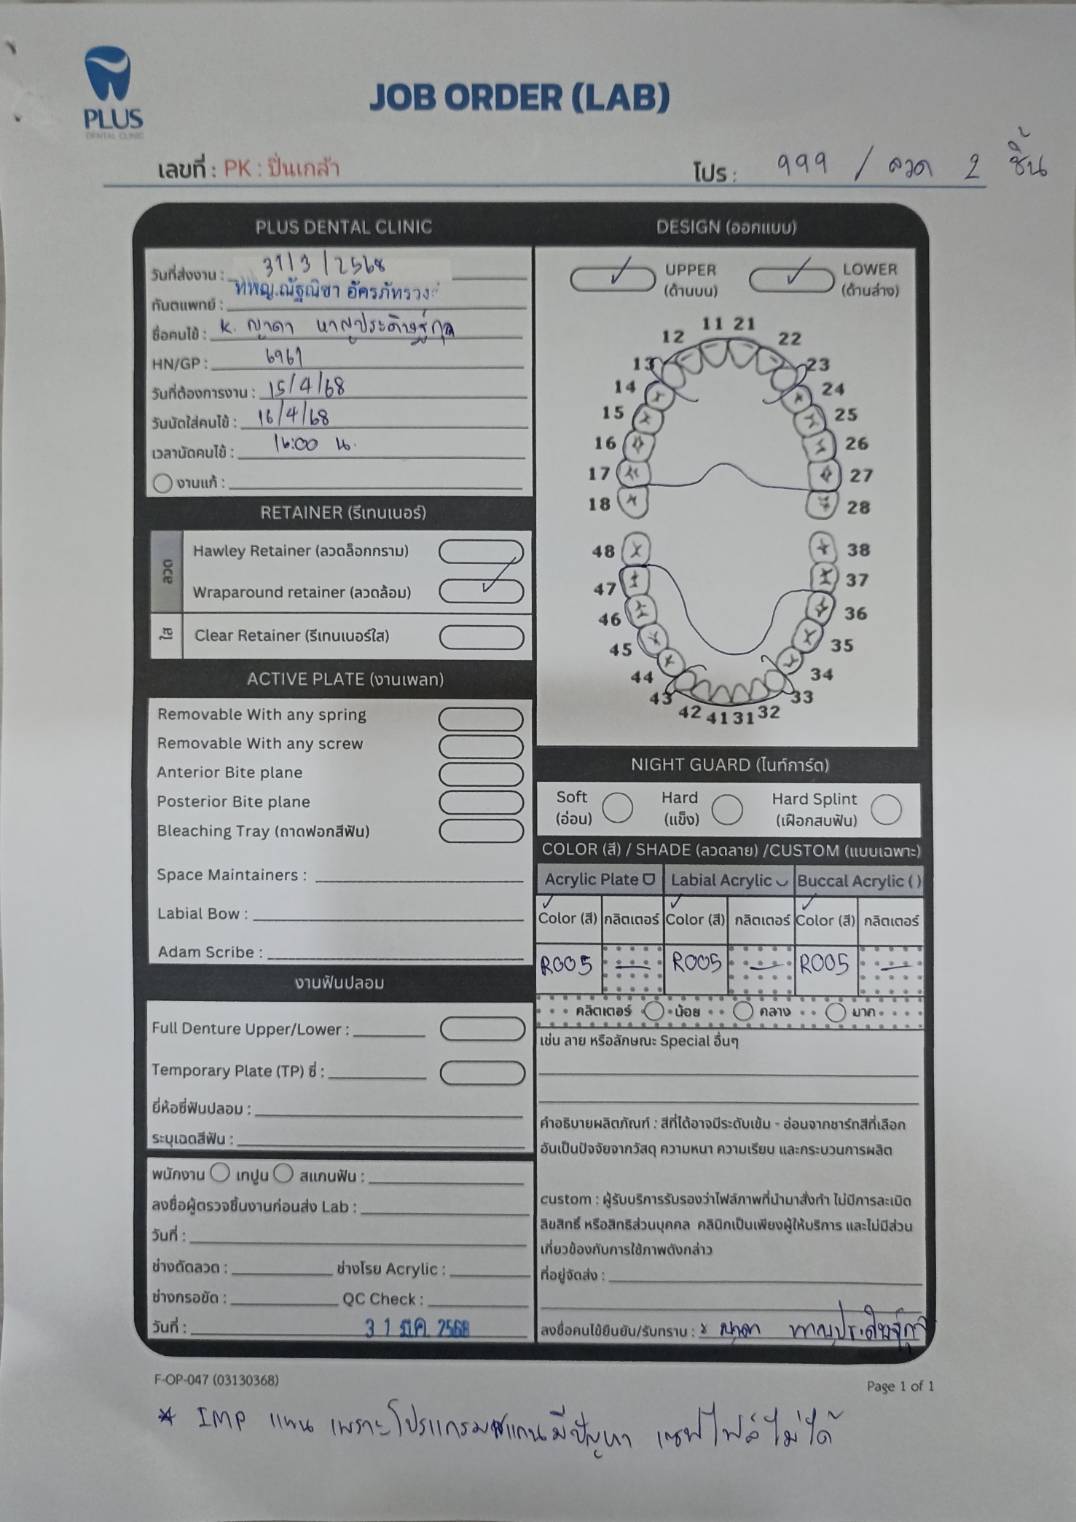 PLUS
DENTAL CLINIC
JOB ORDER (LAB)
เลขที่ : PK : ปิ่นเกล้า
โปร : 999 / ลวด 2 ชิ้น
PLUS DENTAL CLINIC
วันที่ส่งงาน : 31/3/2568
ทันตแพทย์ : ทพญ.ณัฐณิชา อัครภัทรวงศ์
ชื่อคนไข้ : K. ญาดา
HN/GP : 6961
วันที่ต้องการงาน : 15/4/68
วันนัดใส่คนไข้ : 16/4/68
เวลานัดคนไข้ : 16:00 น.
งานแก้ :
RETAINER (รีเทนเนอร์)
ลวด
Hawley Retainer (ลวดล็อกกราม)
Wraparound retainer (ลวดล้อม)
ใส
Clear Retainer (รีเทนเนอร์ใส)
ACTIVE PLATE (งานเพลท)
Removable With any spring
Removable With any screw
Anterior Bite plane
Posterior Bite plane
Bleaching Tray (ถาดฟอกสีฟัน)
Space Maintainers :
Labial Bow :
Adam Scribe :
งานฟันปลอม
Full Denture Upper/Lower :
Temporary Plate (TP) ซี่ :
ยี่ห้อซี่ฟันปลอม :
ระบุเฉดสีฟัน :
พนักงาน เทปูน สแกนฟัน :
ลงชื่อผู้ตรวจชิ้นงานก่อนส่ง Lab :
วันที่ :
ช่างดัดลวด : ช่างโรย Acrylic :
ช่างกรอขัด : QC Check :
วันที่ : 31 มี.ค. 2568
DESIGN (ออกแบบ)
UPPER
(ด้านบน)
LOWER
(ด้านล่าง)
11 21
12 22
13 23
14 24
15 25
16 26
17 27
18 28
48 38
47 37
46 36
45 35
44 34
43 33
42 41 31 32
NIGHT GUARD (ไนท์การ์ด)
Soft
(อ่อน)
Hard
(แข็ง)
Hard Splint
(เฝือกสบฟัน)
COLOR (สี) / SHADE (ลวดลาย) /CUSTOM (แบบเฉพาะ)
Acrylic Plate Labial Acrylic Buccal Acrylic ( )
Color (สี) กลิตเตอร์ Color (สี) กลิตเตอร์ Color (สี) กลิตเตอร์
R005 — R005 — R005 —
คลิตเตอร์ น้อย กลาง มาก
เช่น ลาย หรือลักษณะ Special อื่นๆ
คำอธิบายผลิตภัณฑ์ : สีที่ได้อาจมีระดับเข้ม - อ่อนจากชาร์ทสีที่เลือก
อันเป็นปัจจัยจากวัสดุ ความหนา ความเรียบ และกระบวนการผลิต
custom : ผู้รับบริการรับรองว่าไฟล์ภาพที่นำมาสั่งทำ ไม่มีการละเมิด
ลิขสิทธิ์ หรือสิทธิส่วนบุคคล คลินิกเป็นเพียงผู้ให้บริการ และไม่มีส่วน
เกี่ยวข้องกับการใช้ภาพดังกล่าว
ที่อยู่จัดส่ง :
ลงชื่อคนไข้ยืนยัน/รับทราบ : x ญาดา
F-OP-047 (03130368)
Page 1 of 1
* IMP แทน เพราะโปรแกรมสแกนมีปัญหา เซฟไฟล์ไม่ได้